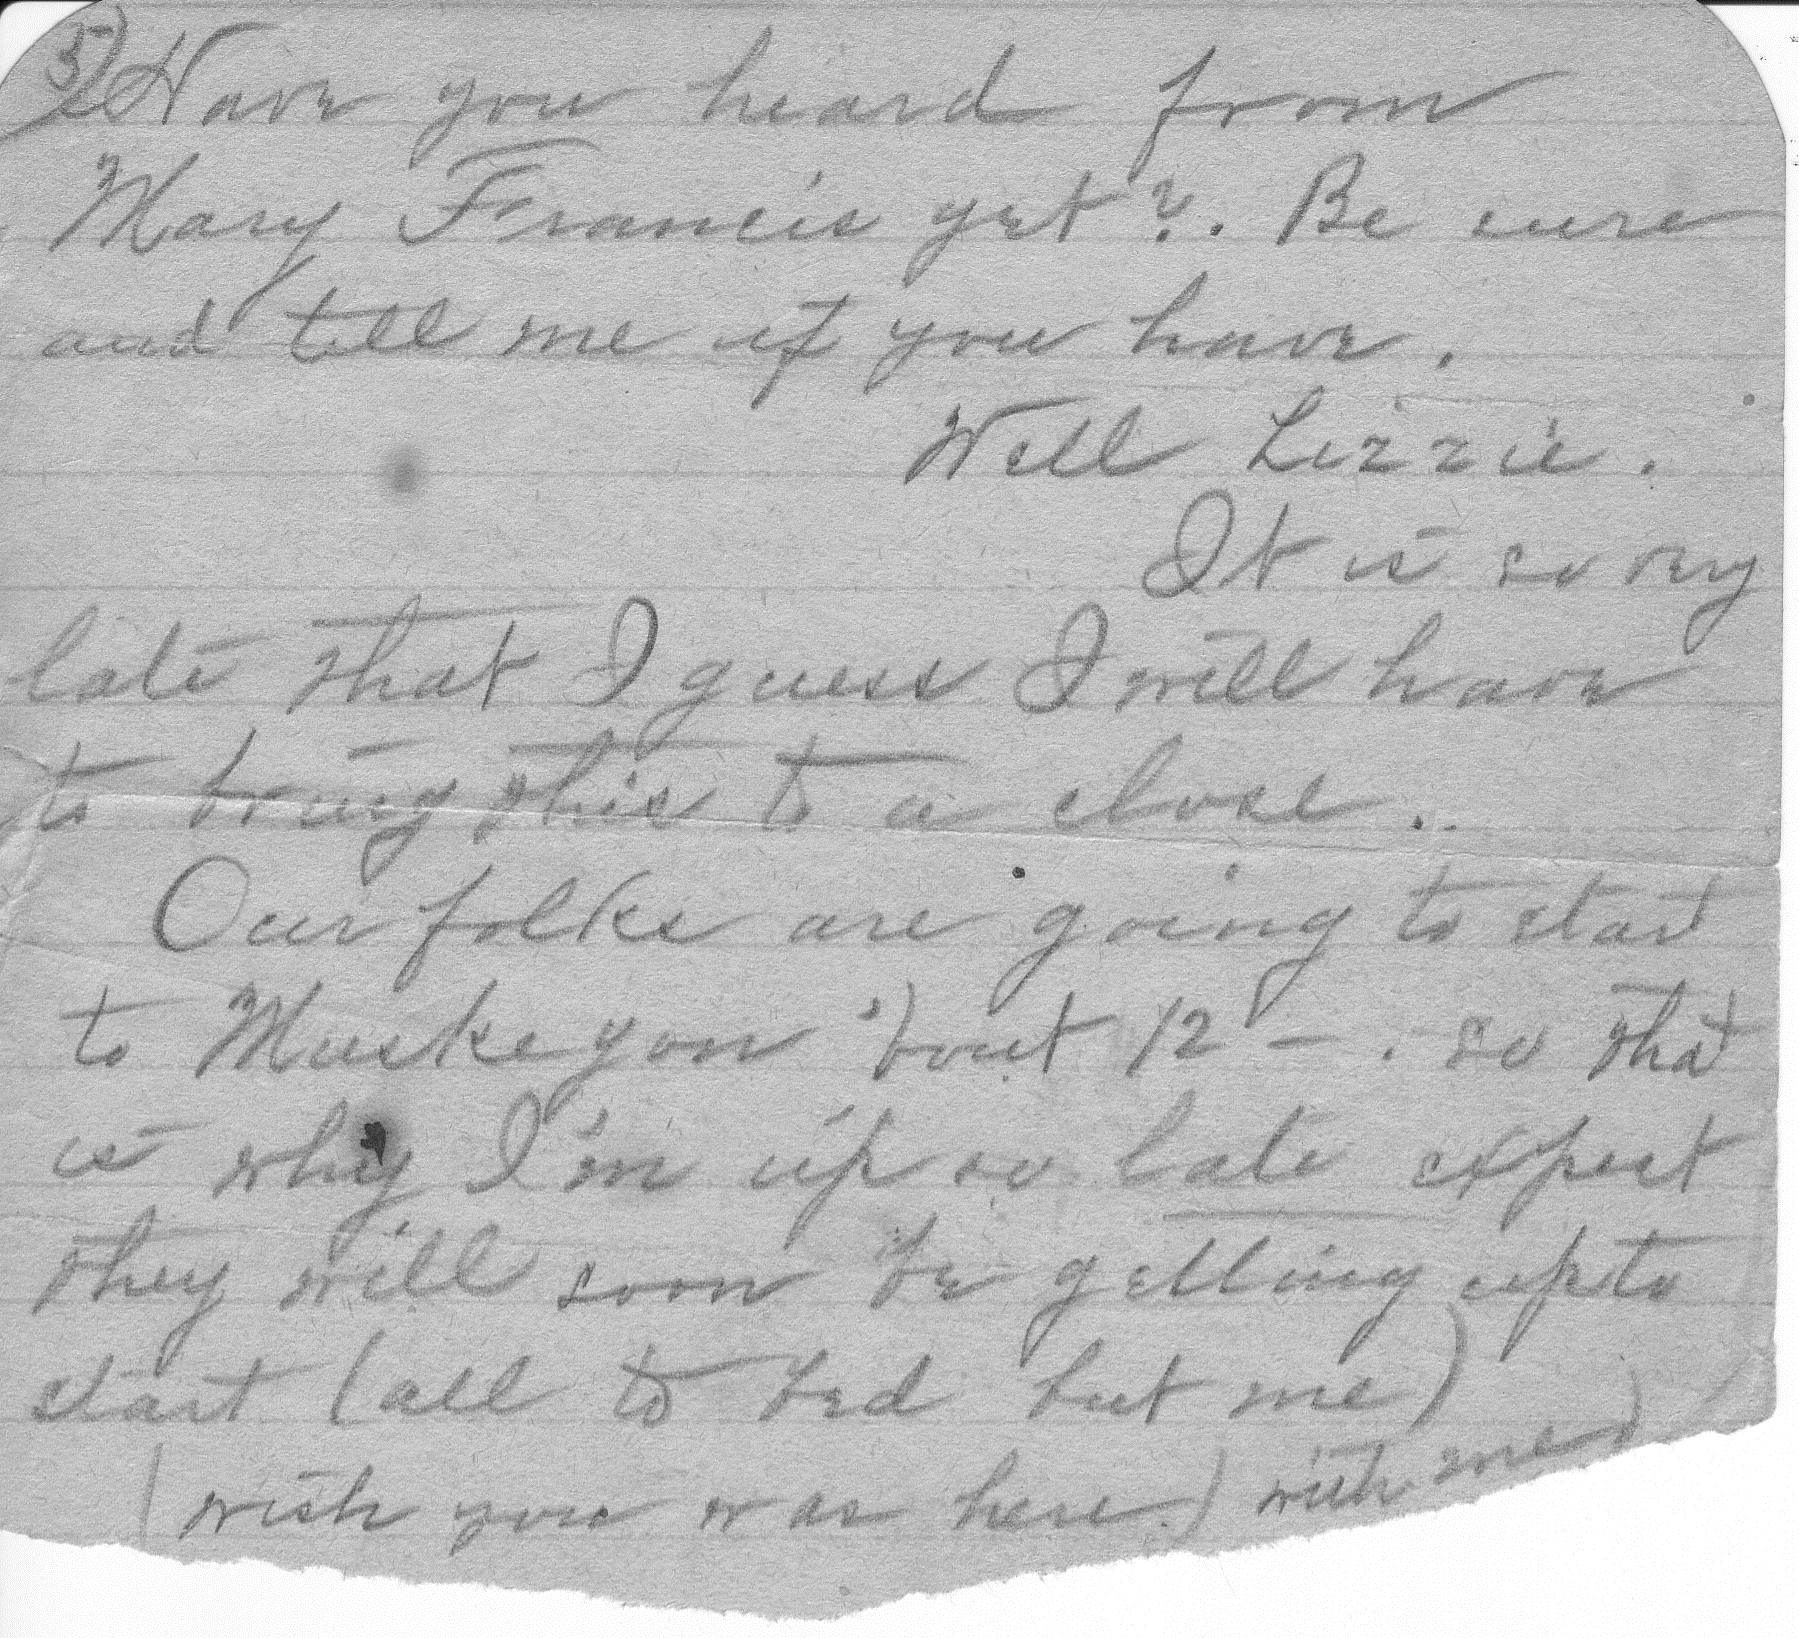 5) Have you heard from
Mary Francis yet?. Be sure
and tell me if you have.
Well Lizzie.
It is so very
late that I guess I will have
to bring this to a close..
Our folks are going to start
to Muskegon 'bout 12 - . so that
is why I'm up so late expect
they will soon be getting up to
start (all to bed but me)
(wish you was here.) with me)